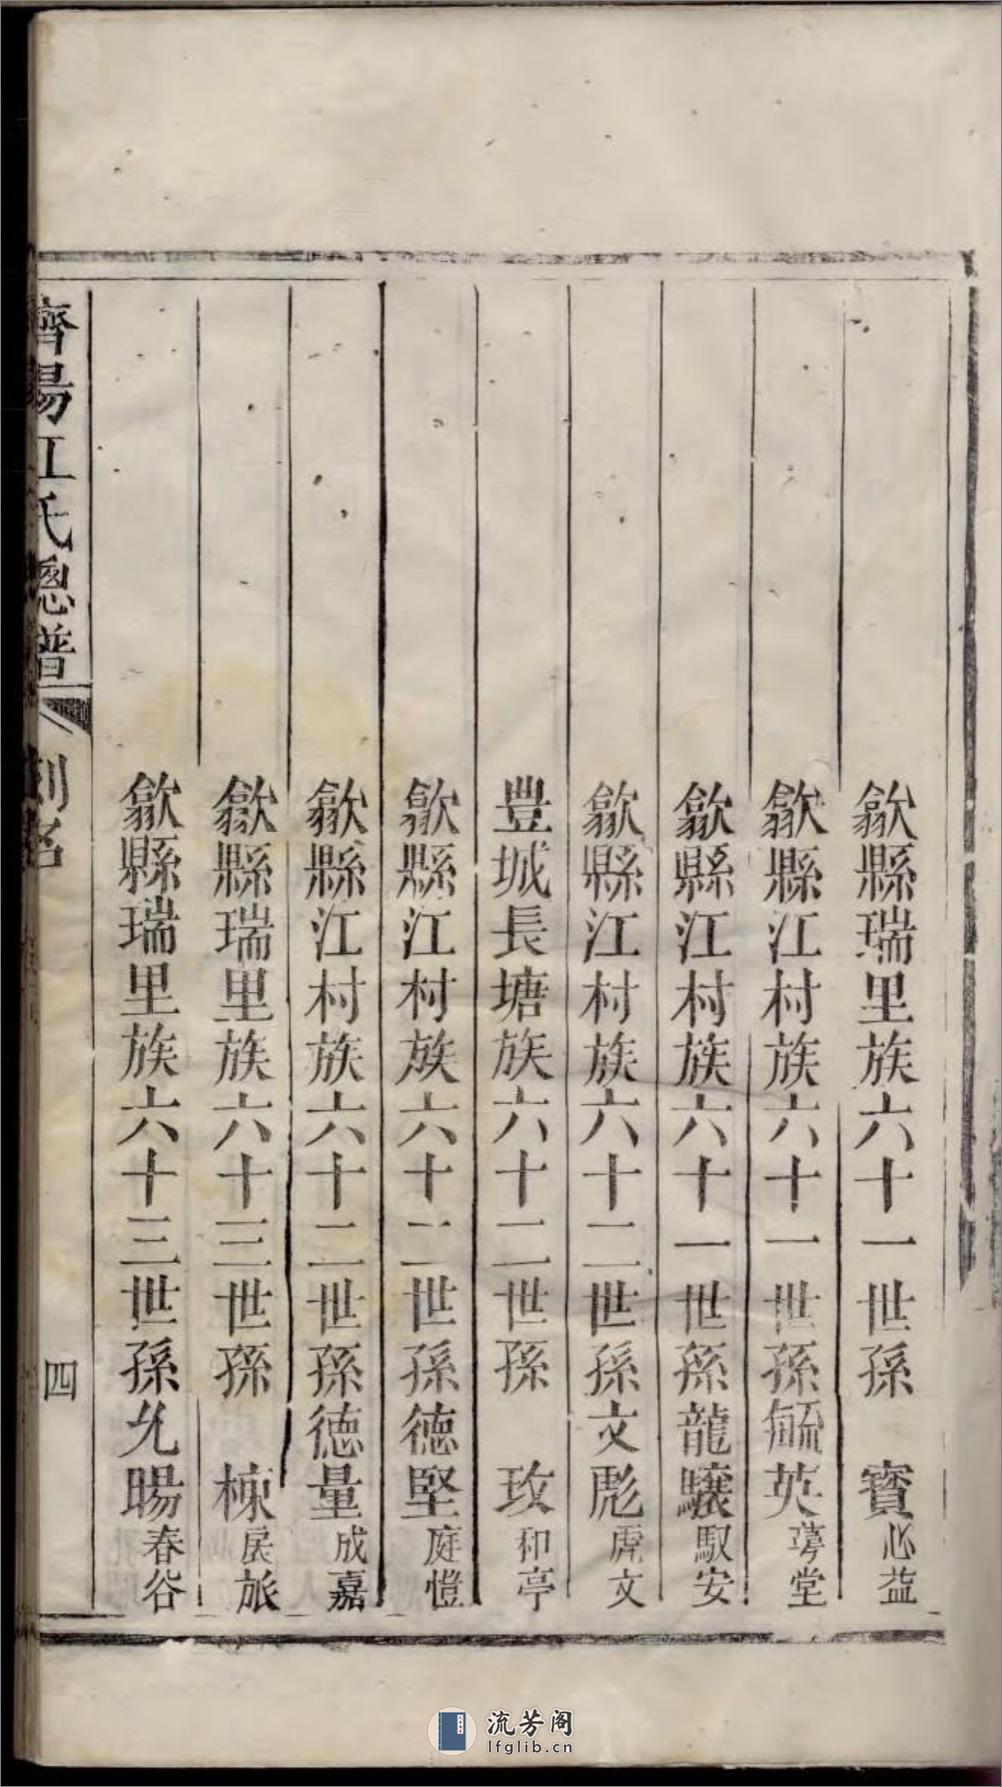 歙縣瑞里族六十一世孫 寳心益
歙縣江村族六十一世孫毓英蕚堂
歙縣江村族六十一世孫龍驤馭安
歙縣江村族六十二世孫文彪虎文
豊城長塘族六十二世孫 玫和亭
歙縣江村族六十二世孫德堅庭愷
歙縣江村族六十二世孫德量成嘉
歙縣瑞里族六十三世孫 棟宸旅
歙縣瑞里族六十三世孫允暘春谷
濟陽江氏總譜 列名 四
流芳阁
lfglib.cn